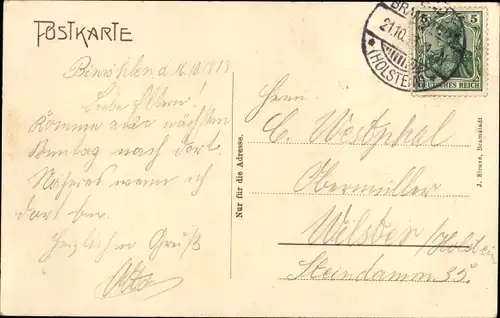 POSTKARTE
Bimöhlen d 16.10.1913
Liebe Eltern!
Komme aus nächsten
Sonntag nach dort.
Näheres wenn ich
dort bin.
Herzlichen Gruß
Otto
Nur für die Adresse.
J. Struve, Bramstedt
(HOLSTEIN)
21.10.
5
DEUTSCHES REICH
Herrn
C. Westphal
Obermüller
Wilster /Holstein
Steindamm 35.